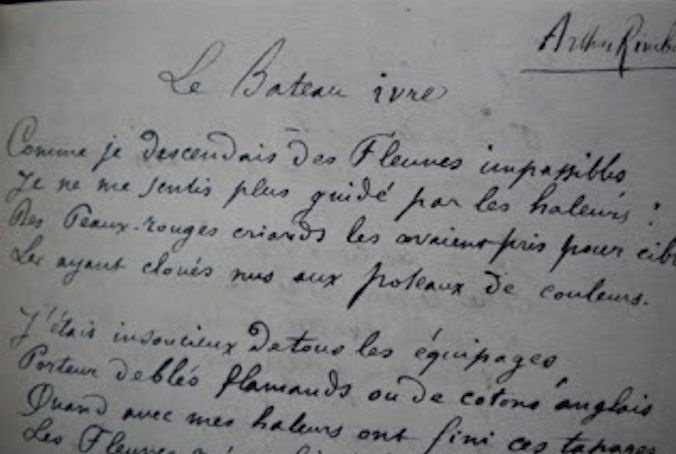 Arthur Rimb
Le Bateau ivre
Comme je descendais des Fleuves impassibles
Je ne me sentis plus guidé par les haleurs :
Des Peaux-rouges criards les avaient pris pour cibl
Les ayant cloués nus aux poteaux de couleurs.
J'étais insoucieux de tous les équipages
Porteur de blés flamands ou de cotons anglais
Quand avec mes haleurs ont fini ces tapages
Les Fleuves